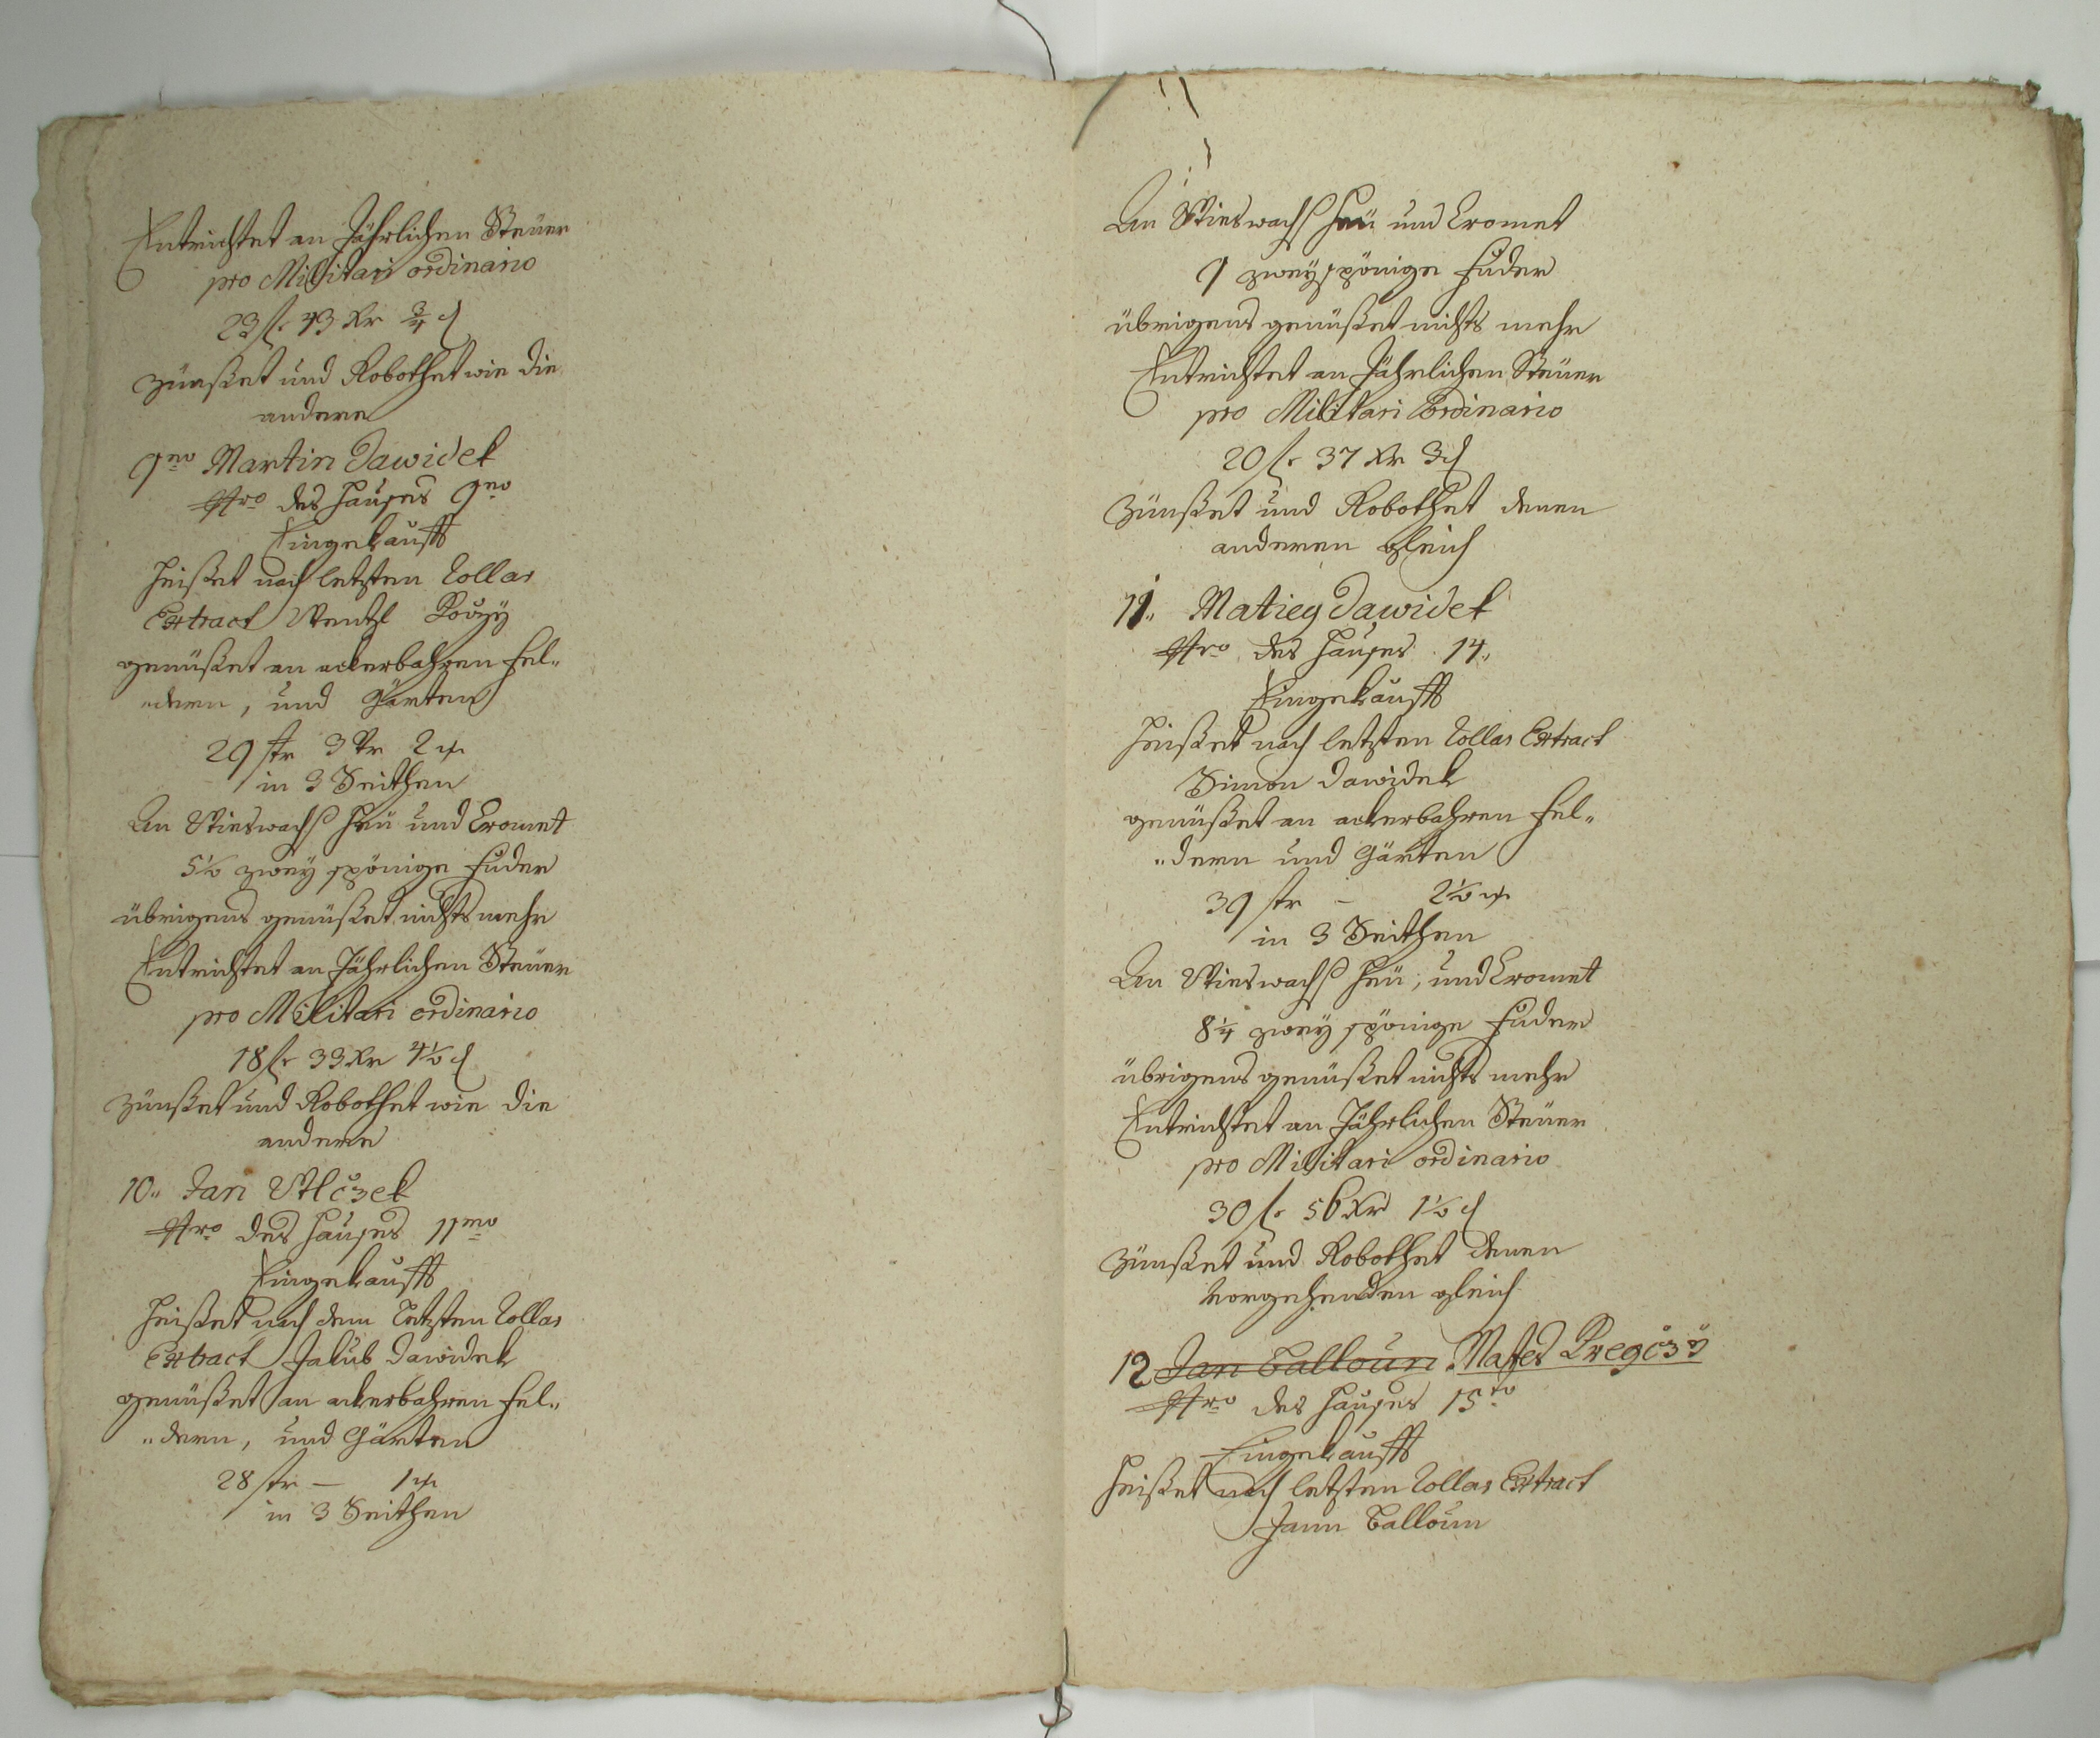 Entrichtet an Jährlichen Steüer
pro Militari ordinario
23 f. 43 Kr ¾ d
zünßet und Robothet wie die
andere
9no Martin Dawidek
Nro des Hauses 9no
Eingekaufft
heißet nach letzten Collas
Extract Wentzl
genüßet an ackerbahren Fel„
„dern, und Gärten
29 str 3 Vr 2
in 3 Seithen
An Wieswachs Heü und Gromet
5½ zweyspönige Fuder
übrigens genüßet nichts mehr
Entrichtet an Jährlichen Steüer
pro Militari ordinario
18 f. 33 Kr 4½ d
zünßet und Robothet wie die
andere
10„ Jan Wlczek
Nro des Hauses 11mo
Eingekaufft
heißet nach dem Letzten Collas
Extract Jakub Dawidek
genüßet an ackerbahren Fel„
„dern, und Gärten
28 str — 1
in 3 Seithen
An Wieswachs Heü und Gromet
9 zweyspönige Fuder
übrigens genüßet nichts mehr
Entrichtet an Jährlichen Steüer
pro Militari Ordinario
20 f. 37 Kr 3 d
zünßet und Robothet denen
anderen gleich
11„ Matieg Dawidek
Nro des Hauses 14„
Eingekaufft
heißet nach letzten Collas Extract
Simon Dawidek
genüßet an ackerbahren Fel„
„dern und Gärten
39 str – 2½
in 3 Seithen
An Wieswachs Heü, und Gromet
8¼ zweyspönige Fuder
übrigens genüßet nichts mehr
Entrichtet an Jährlichen Steüer
pro Militari ordinario
30 f. 56 Kr 1½ d
zünßet und Robothet denen
vorgehenden gleich
12 Jan Balloun Mates Kregczy
Nro des Hauses 15to
Eingekaufft
heißet nach letzten Collas Extract
Jann Balloun